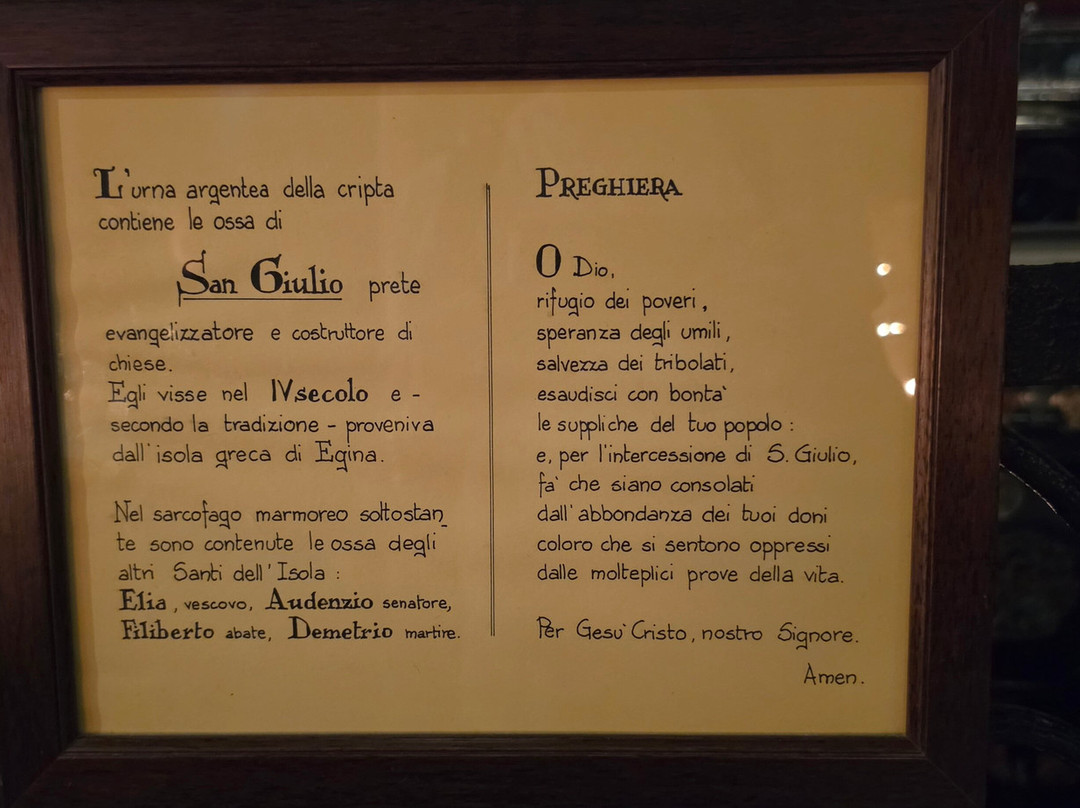 L'urna argentea della cripta
contiene le ossa di
San Giulio prete
evangelizzatore e costruttore di
chiese.
Egli visse nel IV secolo e -
secondo la tradizione - proveniva
dall'isola greca di Egina.
Nel sarcofago marmoreo sottostan_
te sono contenute le ossa degli
altri Santi dell'Isola :
Elia, vescovo, Audenzio senatore,
Filiberto abate, Demetrio martire.
PREGHIERA
O Dio,
rifugio dei poveri,
speranza degli umili,
salvezza dei tribolati,
esaudisci con bonta'
le suppliche del tuo popolo :
e, per l'intercessione di S. Giulio,
fa' che siano consolati
dall'abbondanza dei tuoi doni
coloro che si sentono oppressi
dalle molteplici prove della vita.
Per Gesu' Cristo, nostro Signore.
Amen.